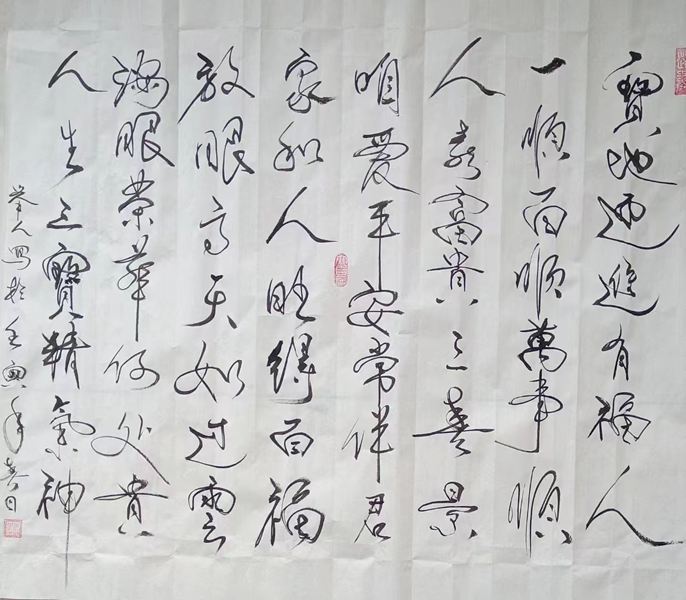 寶地迎進有福人
一順百順萬事順
人壽富貴三春景
咱愛平安常伴君
家和人旺得百福
放眼高天如过雲
滿眼榮華何处貴
人生三寶精氣神
人寫於年春日